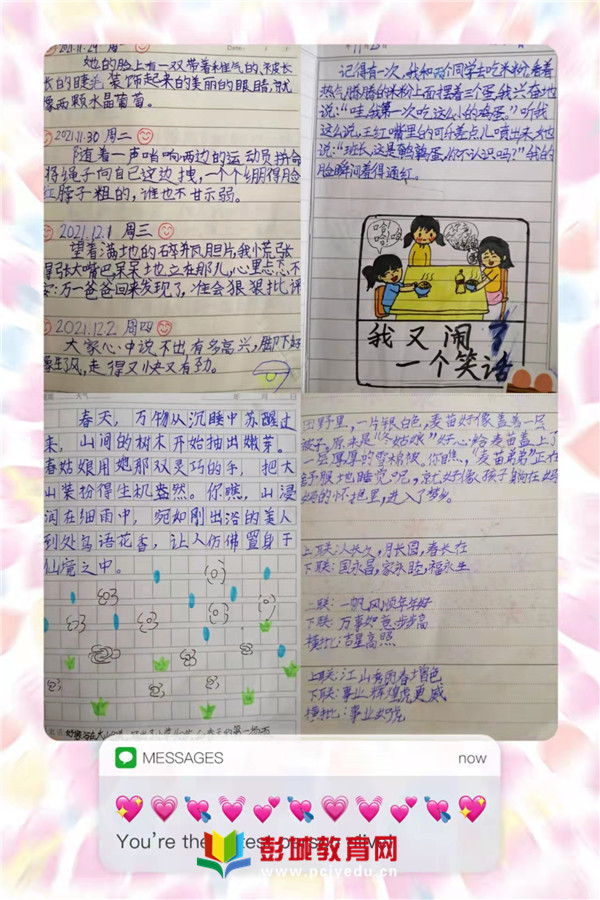 2021.11.29 周一
Date:
她的脸上有一双带着稚气的、被长
长的睫毛装饰起来的美丽的眼睛,就
像两颗水晶葡萄。
2021.11.30 周二
随着一声哨响两边的运动员拼命
将绳子向自己这边拽,一个个绷得脸
红脖子粗的,谁也不甘示弱。
2021.12.1 周三
望着满地的碎 胆片,我小 张
嘴巴呆呆地立在那儿,心里忐忑不
安:万一爸爸回来发现了,准会狠狠批评
2021.12.2 周四
大家心中说不出有多高兴,脚下好
像生了风,走得又快又有劲。
记得有一次,我和两个同学去吃米粉,看着
热气腾腾的米粉上面摆着三个蛋,我兴奋地
说:“哇,我第一次吃这么小的鸡蛋。”听我
这么说,王红嘴里的可乐差点儿喷出来,她
说:“班长,这是鹌鹑蛋,你不认识吗?”我的
脸瞬间羞得通红。
哈哈
我又闹了
一个笑话
春天,万物从沉睡中苏醒过
来,山间的树木开始抽出嫩芽。
春姑娘用她那双灵巧的手,把大
山装扮得生机盎然。你瞧,山浸
润在细雨中,宛如刚出浴的美人
到处鸟语花香,让人仿佛置身于
仙境之中。
田野里,一片银白色,麦苗好像盖着一床
被子,原来是“冬姑娘”好心给麦苗盖上了
一层厚厚的雪棉被。你瞧,“麦苗弟弟”正在
舒服地睡觉呢,就好像孩子躺在妈
妈的怀抱里,进入了梦乡。
上联:人长久,月长圆,春长在
下联:国永昌,家永睦,福永生
上联:一帆风顺年年好
下联:万事如意步步高
横批:吉星高照
上联:江山秀丽春增色
下联:事业辉煌虎更威
横批:事业如虎
MESSAGES
now
You're the
彭城教育网
www.pcjyedu.cn